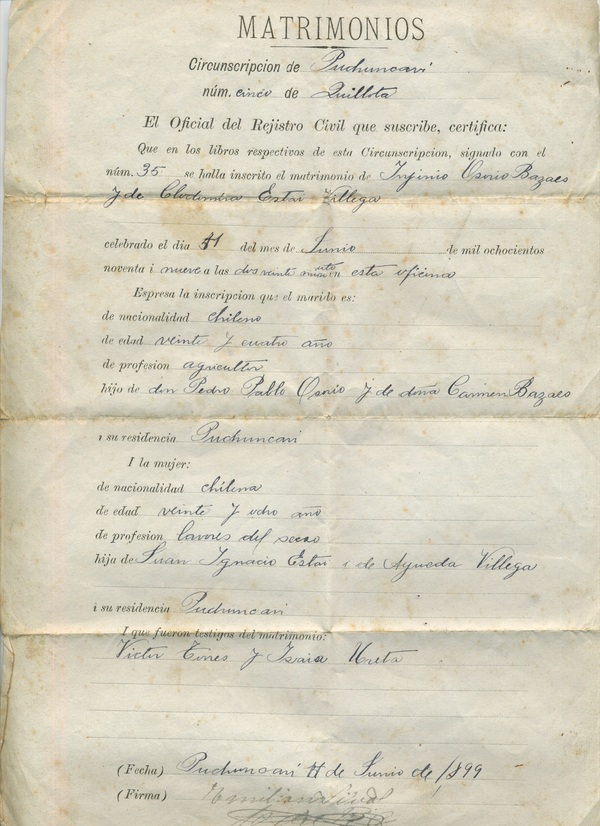 MATRIMONIOS
Circunscripcion de Puchuncaví
núm. cinco de Quillota
El Oficial del Rejistro Civil que suscribe, certifica:
Que en los libros respectivos de esta Circunscripcion, signado con el
núm. 35 se halla inscrito el matrimonio de Injinio Osorio Bazaes
y de Clodomira Estai Villega
celebrado el dia 11 del mes de Junio de mil ochocientos
noventa i nueve a las dos en esta oficina
Espresa la inscripcion que el marido es:
de nacionalidad chileno
de edad veinte y cuatro año
de profesion agricultor
hijo de don Pedro Pablo Osorio y de doña Carmen Bazaes
i su residencia Puchuncavi
I la mujer:
de nacionalidad chilena
de edad veinte y ocho año
de profesion lavores del secso
hija de Juan Ignacio Estai i de Agueda Villega
i su residencia Puchuncavi
I que fueron testigos del matrimonio:
Victor Torres y Isaia Ureta
(Fecha) Puchuncaví 11 de Junio de 1899
(Firma)